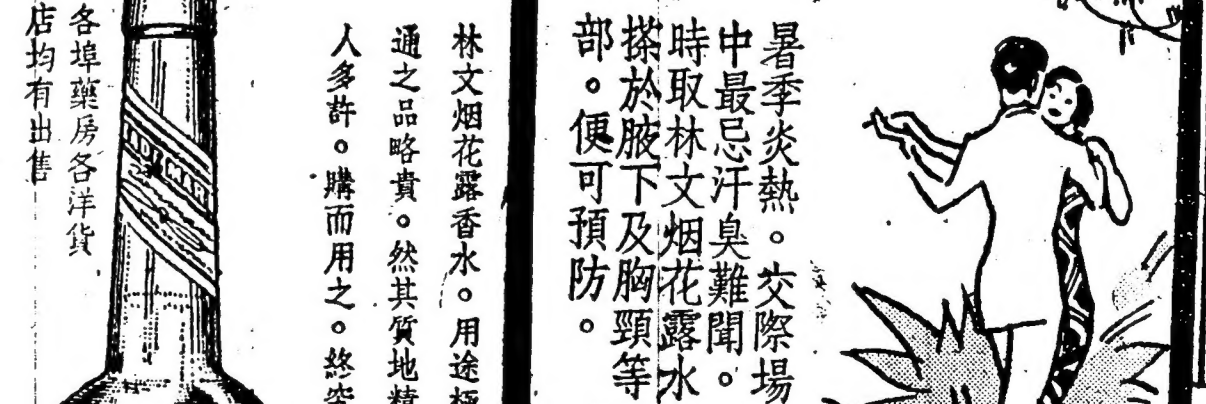 暑季炎熱。交際場
中最忌汗臭難聞。
時取林文烟花露水
搽於腋下及胸頸等
部。便可預防。
林文烟花露香水。用途極
通之品略貴。然其質地精
人多許。購而用之。終
各埠藥房各洋貨
店均有出售